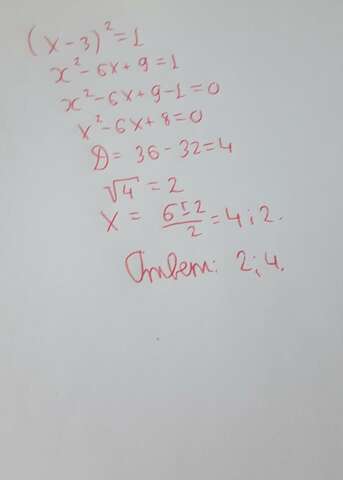 (x-3)²=1
x²-6x+9=1
x²-6x+9-1=0
x²-6x+8=0
D= 36-32=4
√4 =2
X = 6±2/2 =4;2.
Ответ: 2;4.